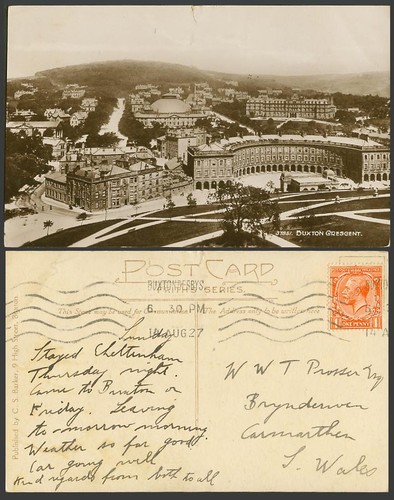 BUXTON CRESCENT.
POST CARD
BUXTON DERBYS.
SERIES.
6. 30 PM
AUG 27
This Space may be used for Communication
The Address only to be written here
POSTAGE
ONE PENNY
Published by C. S. Barker, 9 High Street, Buxton
Sunday
Stayed Cheltenham
Thursday night.
Came to Buxton on
Friday. Leaving
to-morrow morning.
Weather so far good.
Car going well
Kind regards from both to all
W W T Prosser Esq
Brynderwen
Carmarthen
S. Wales